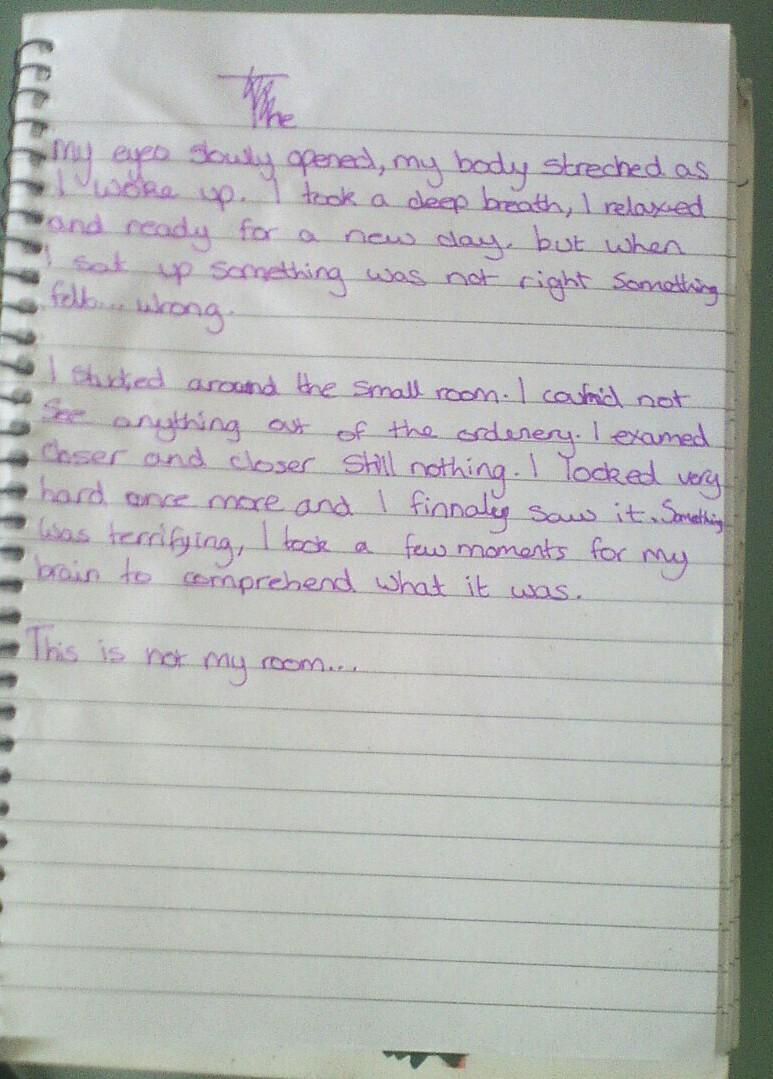 The
My eyes slowly opened, my body streched as
I woke up. I took a deep breath, I relaxed
and ready for a new day. but when
I sat up something was not right something
felt.... wrong.
I studied around the small room. I could not
see anything out of the ordenery. I examed
closer and closer still nothing. I looked very
hard once more and I finnaley saw it. Something
was terrifying, I took a few moments for my
brain to comprehend what it was.
This is not my room...